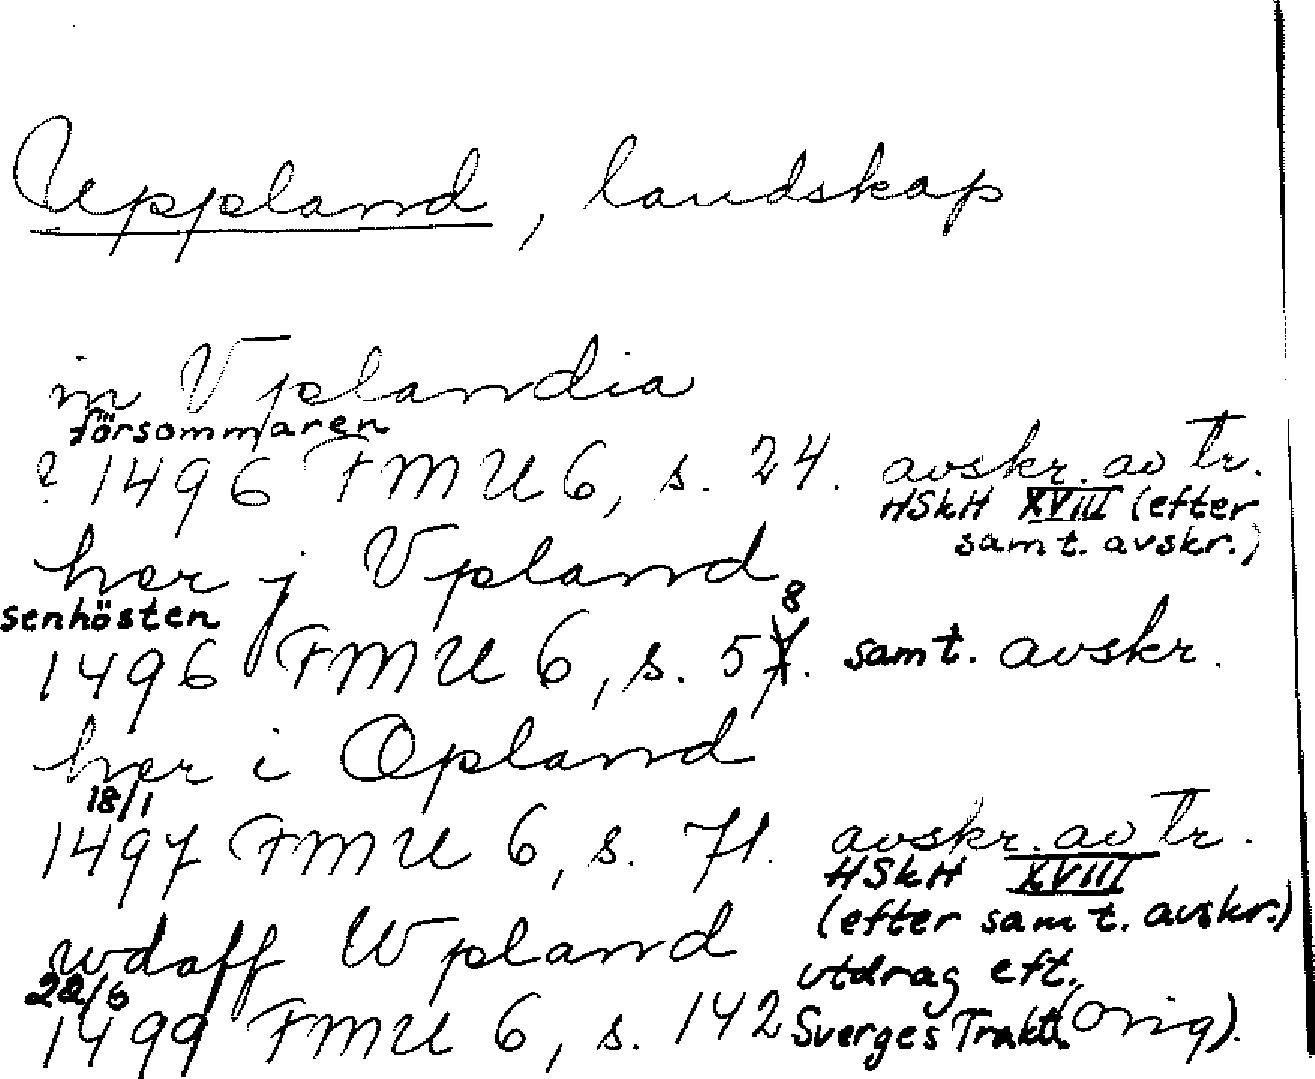 Uppland, landskap
in Vplandia
försommaren
? 1496 FMU 6, s. 24. avskr. av tr.
HSkH XVIII (efter
samt. avskr.)
her j Vpland
senhösten
1496 FMU 6, s. 58. samt. avskr.
her i Opland
18/1
1497 FMU 6, s. 71. avskr. av tr.
HSkH XVIII
(efter samt. avskr.)
wdaff Wpland
utdrag eft.
22/6
1499 FMU 6, s. 142 Sverges Trakt. (Orig).